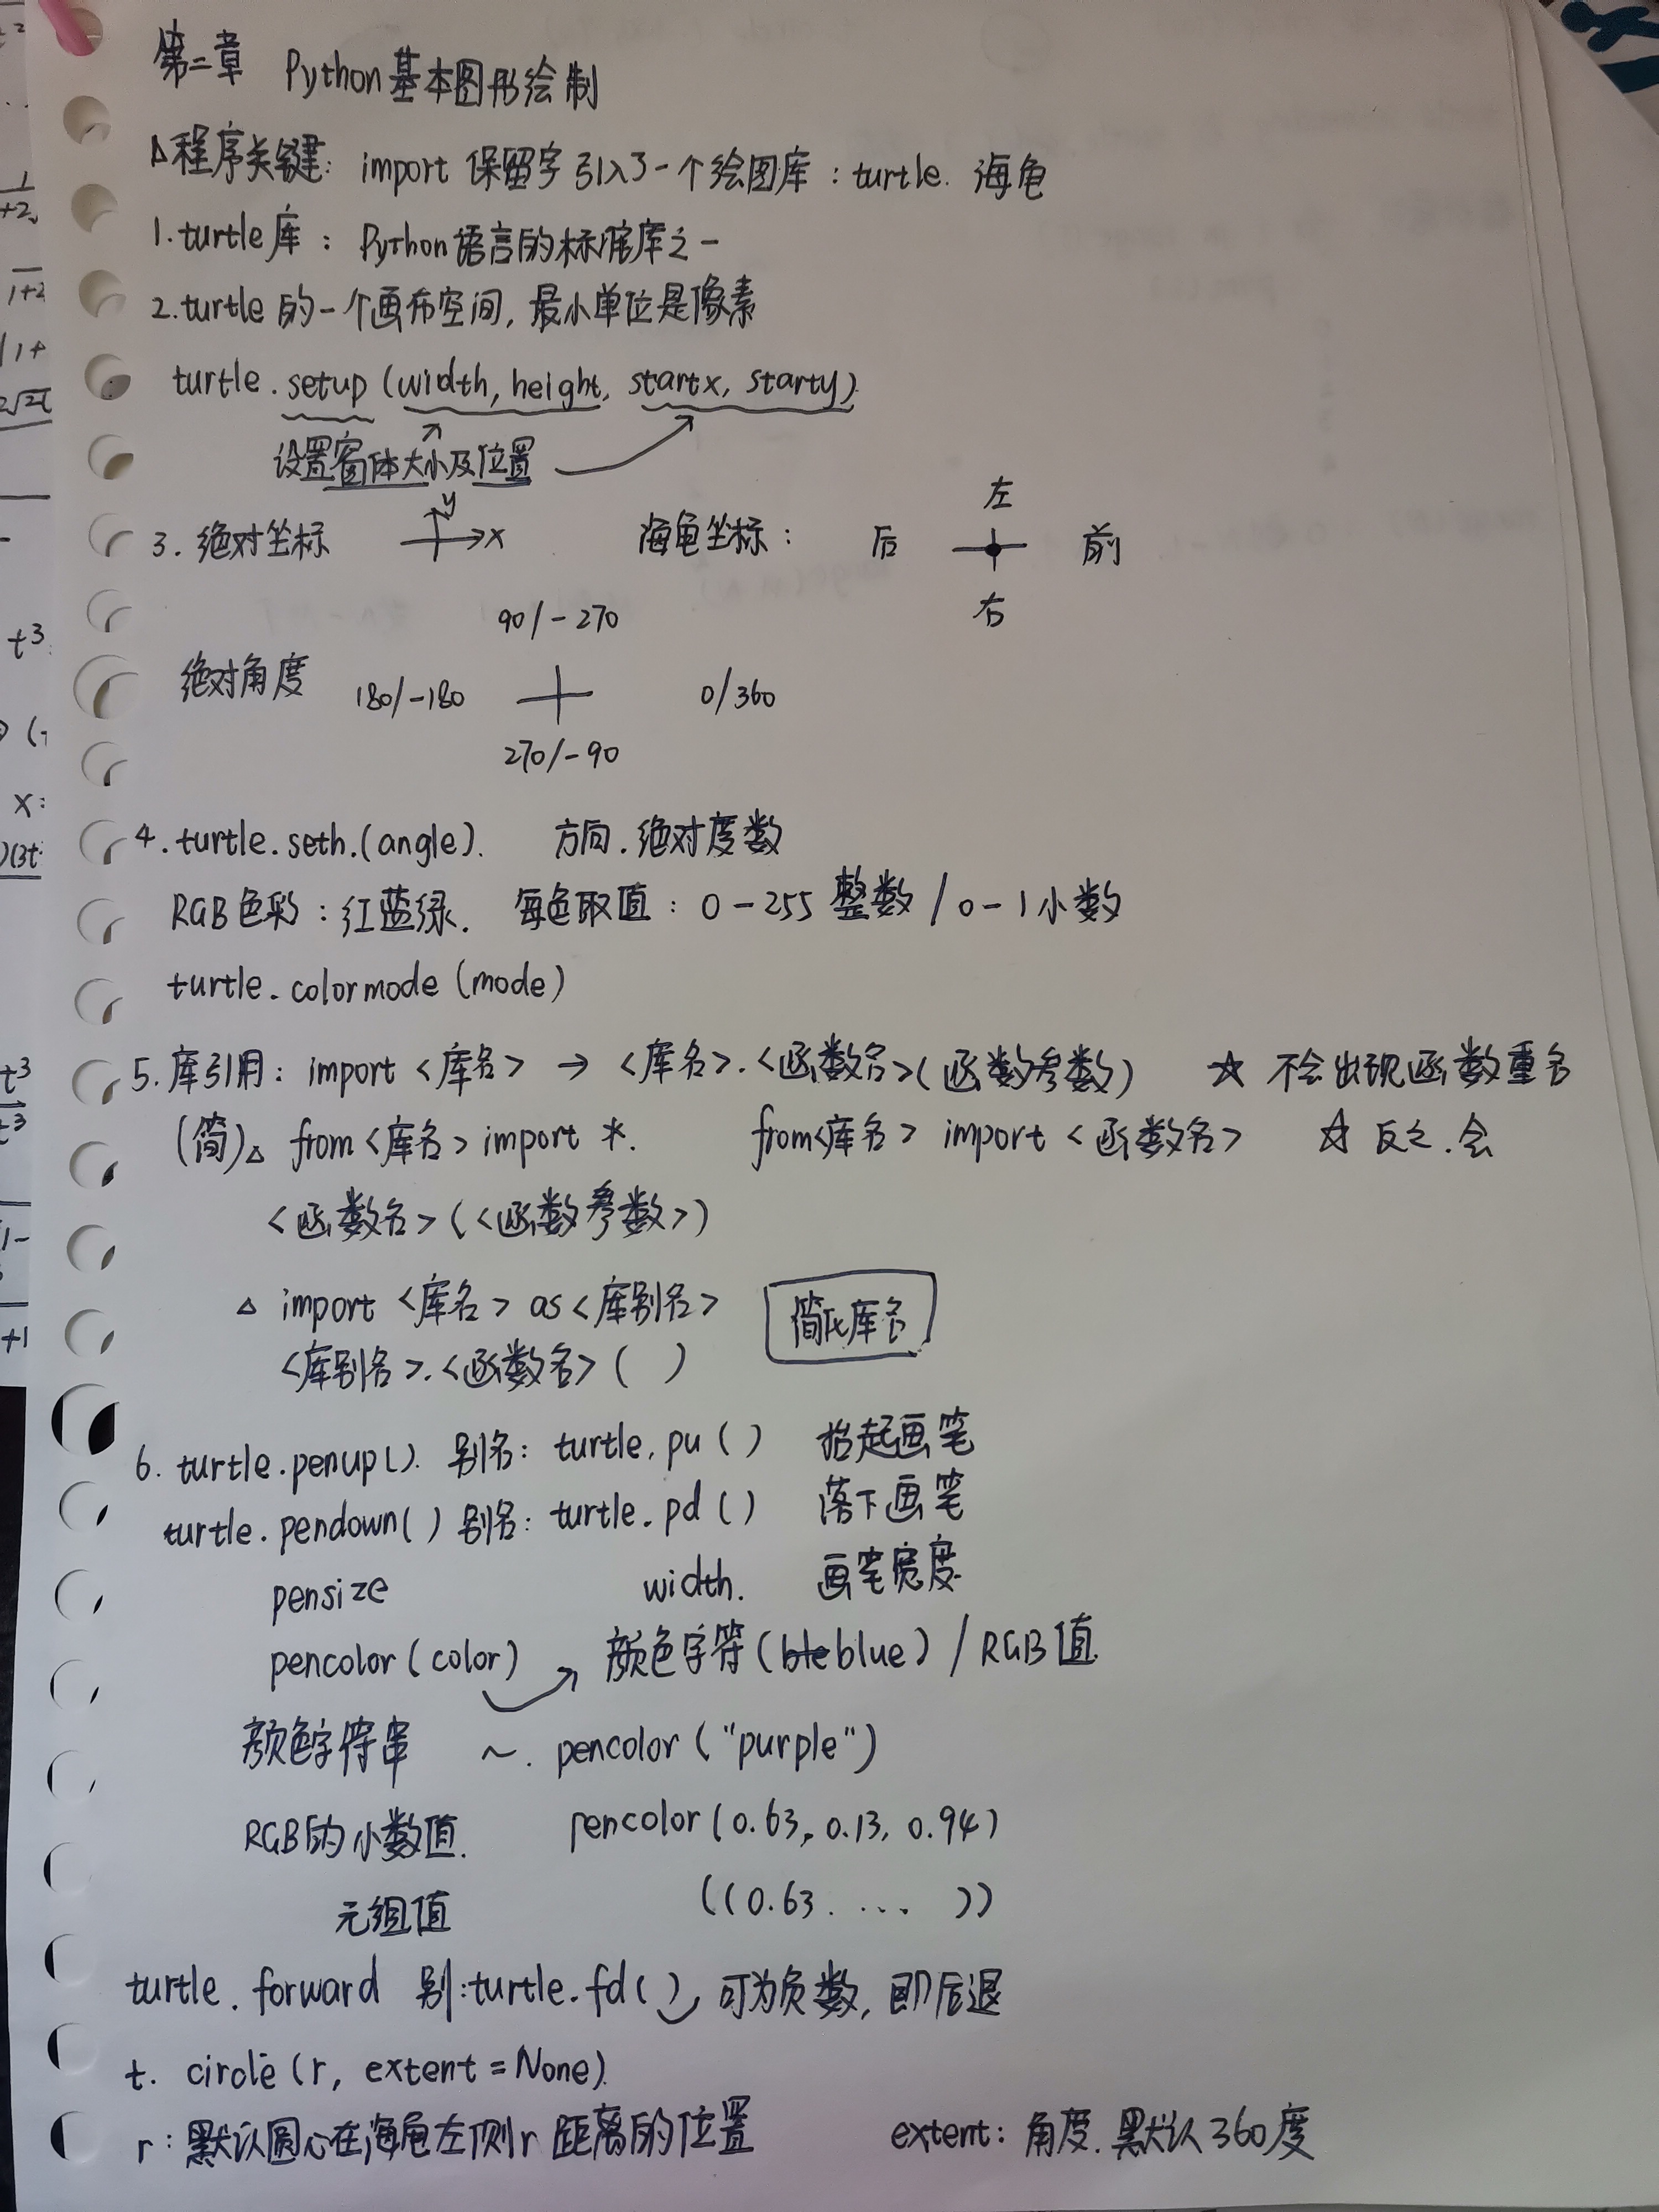 第二章 Python基本图形绘制
△程序关键: import 保留字 引入了一个绘图库: turtle. 海龟
1. turtle库: Python语言的标准库之一
2. turtle 的一个画布空间, 最小单位是像素
turtle.setup (width, height, startx, starty).
设置窗体大小及位置
3. 绝对坐标 y x 海龟坐标: 左 后 前 右
90/-270
绝对角度 180/-180 0/360
270/-90
4. turtle.seth.(angle). 方向. 绝对度数
RGB色彩: 红蓝绿. 每色取值: 0-255 整数 / 0-1 小数
turtle.colormode (mode)
5. 库引用: import <库名> → <库名>.<函数名>(函数参数) ☆ 不会出现函数重名
(简)△ from <库名> import *. from<库名> import <函数名> ☆ 反之.会
<函数名>(<函数参数>)
△ import <库名> as <库别名> 简化库名
<库别名>.<函数名>( )
6. turtle.penup(). 别名: turtle.pu ( ) 抬起画笔
turtle.pendown( ) 别名: turtle.pd ( ) 落下画笔
pensize width. 画笔宽度.
pencolor (color) → 颜色字符 (blue) / RGB值
颜色字符串 ~. pencolor ("purple")
RGB的小数值. pencolor (0.63, 0.13, 0.94)
元组值 ((0.63. ... ))
turtle.forward 别:turtle.fd( ) 可为负数, 即后退
t. circle (r, extent = None).
r: 默认圆心在海龟左侧r距离的位置 extent: 角度. 默认360度